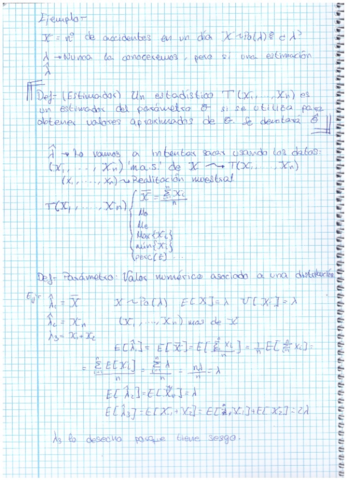 Ejemplo-
X = nº de accidentes en un día X ~ Po(λ) e^λ
λ → Nunca la conoceremos, pero si una estimación
λ̂
Def- (Estimador) Un estadístico T(X₁, ..., Xₙ) es
un estimador del parámetro θ si se utiliza para
obtener valores aproximados de θ. Se denotará θ̂
λ̂ → La vamos a intentar sacar usando los datos.
(X₁, ..., Xₙ) m.a.s. de X ⟶ T(X₁, Xₙ)
(x₁, ..., xₙ) → Realización muestral
T(X₁, ..., Xₙ) { X̄ = Σxᵢ/n
Me
Mo
Max{Xᵢ}
min{Xᵢ}
Def- Parámetro: Valor numérico asociado a una distribución
Ej- λ̂₁ = X̄ X ~ Po(λ) E[X] = λ V[X] = λ
λ̂₂ = Xₙ (X₁, ..., Xₙ) mas de X
λ̂₃ = X₁ + X₂
E[λ̂₁] = E[X̄] = E[Σxᵢ/n] = 1/n E[Σxᵢ] =
= ΣE[Xᵢ]/n = Σλ/n = nλ/n = λ
E[λ̂₂] = E[Xₙ] = λ
E[λ̂₃] = E[X₁ + X₂] = E[X₁] + E[X₂] = 2λ
λ̂₃ lo desecho porque tiene sesgo.